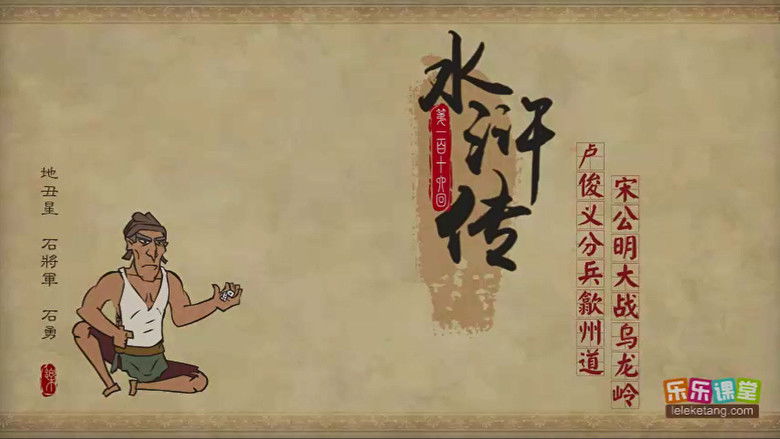 水浒传
第一百十六回
卢俊义分兵歙州道
宋公明大战乌龙岭
地丑星 石將軍 石勇
乐乐课堂
leleketang.com